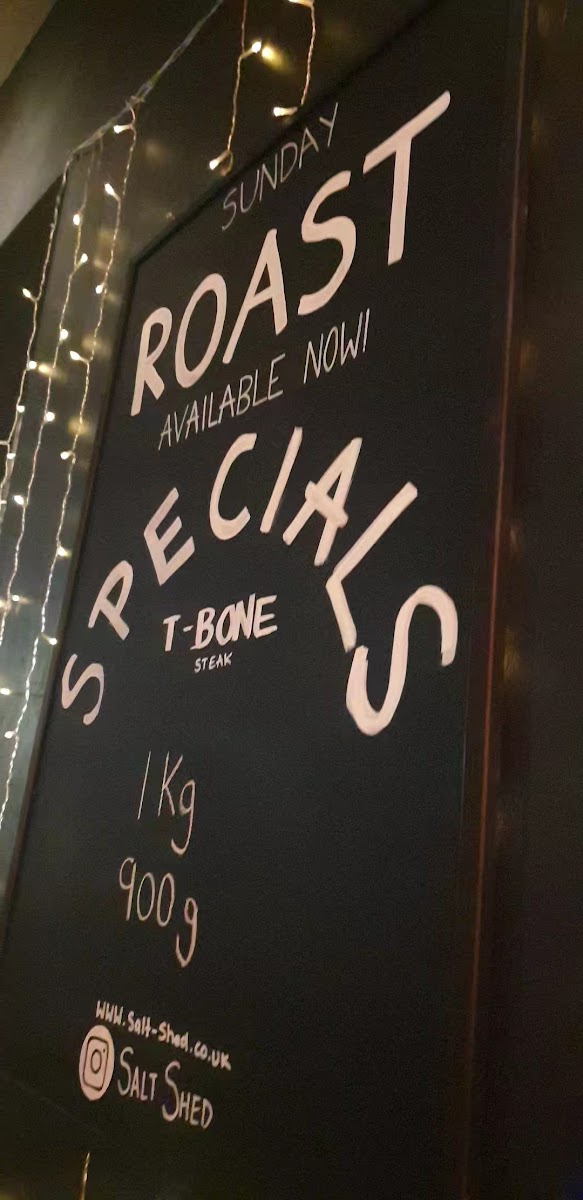 SUNDAY
ROAST
AVAILABLE NOW!
SPECIALS
T-BONE
STEAK
1Kg
900g
www.Salt-Shed.co.uk
SALT SHED